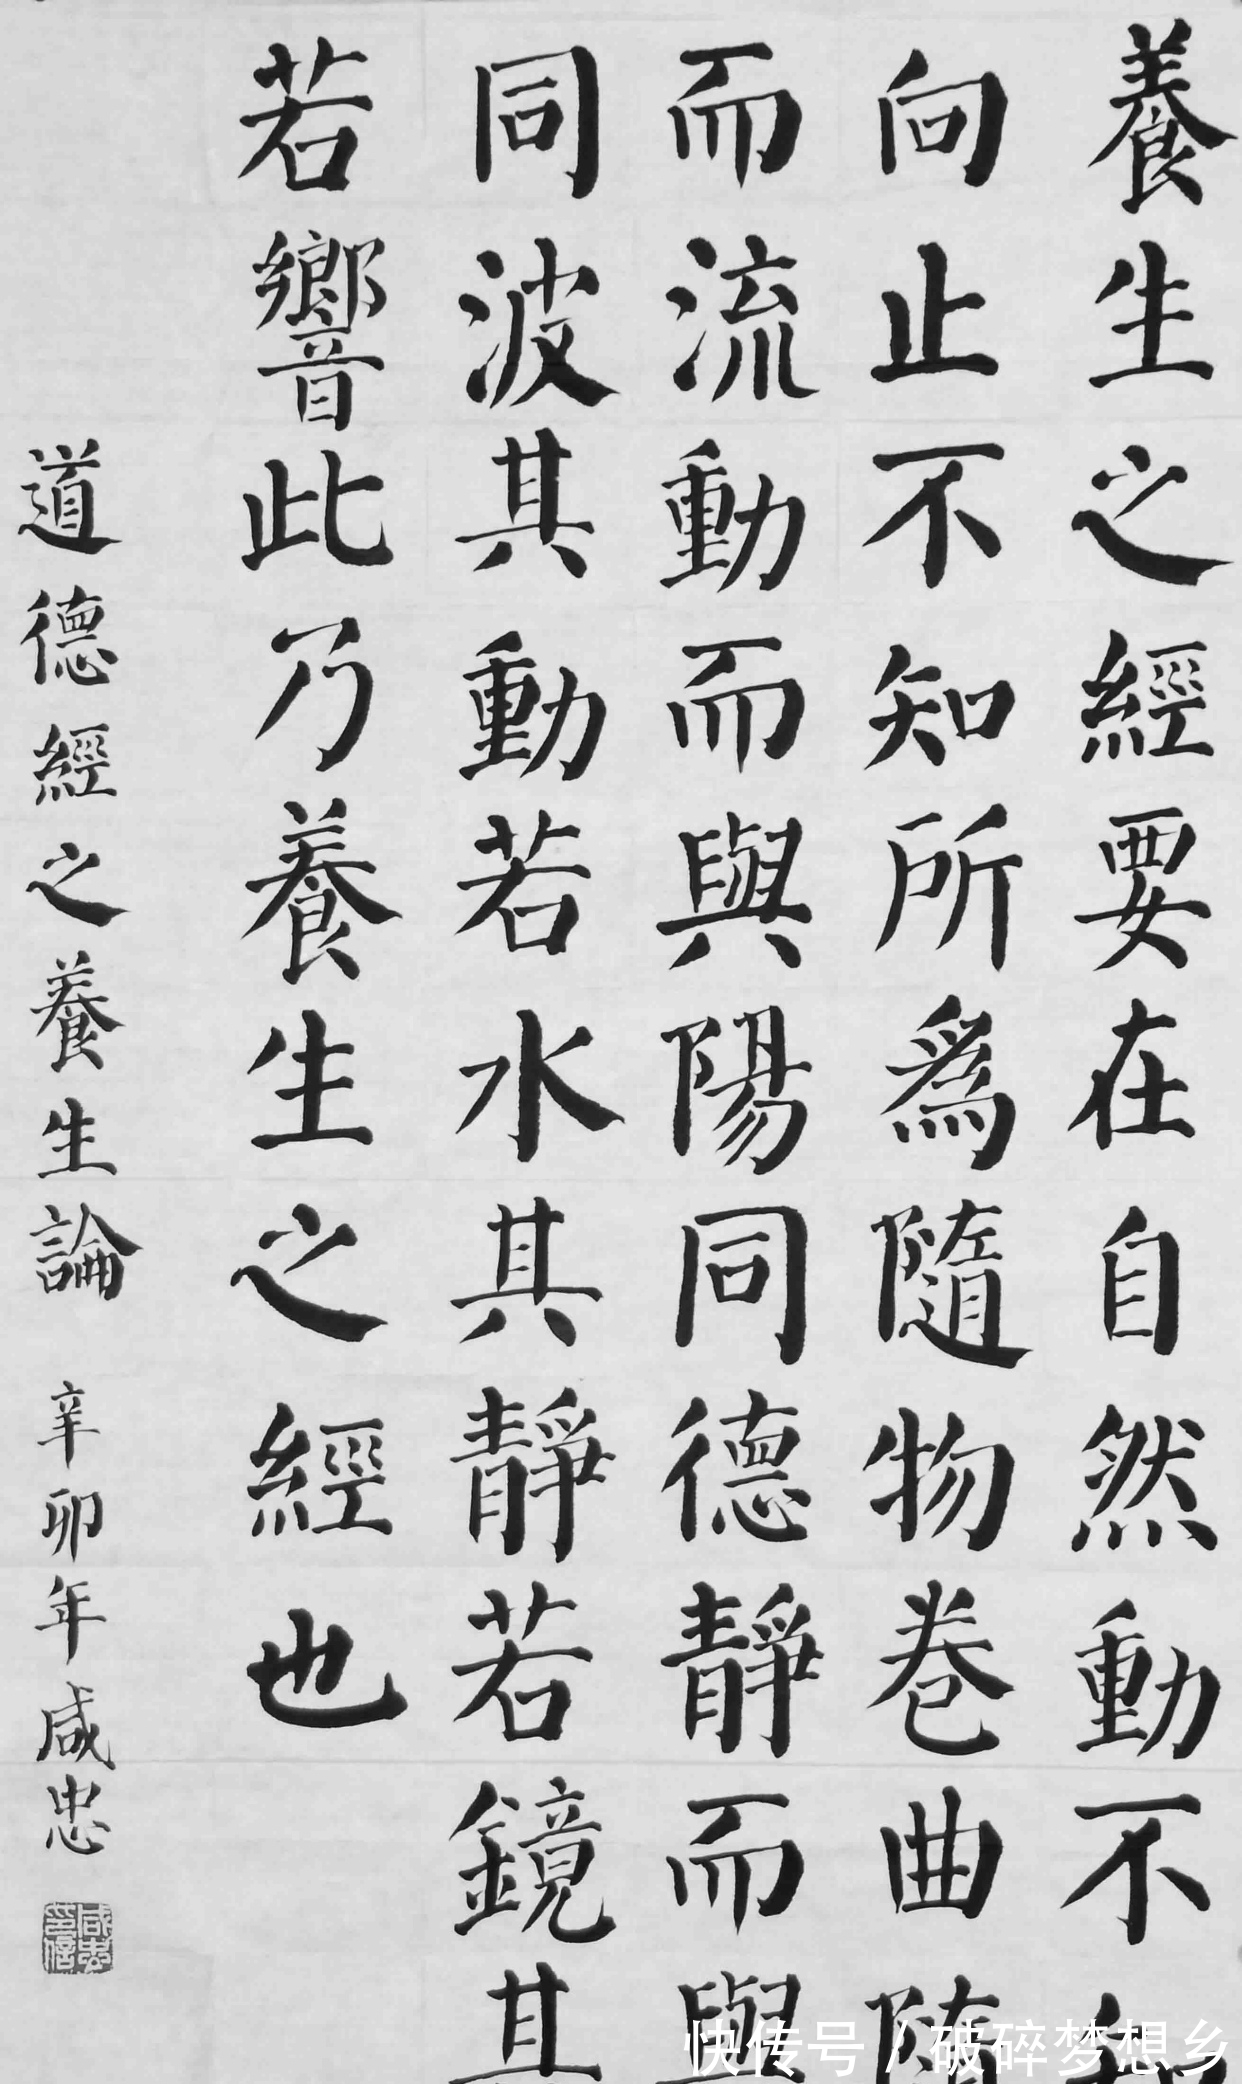 養生之經要在自然動不知
向止不知所爲隨物卷曲隨
而流動而與陽同德靜而與
同波其動若水其靜若鏡其
若響此乃養生之經也
道德經之養生論 辛卯年咸忠
咸忠印信
快传号 / 破碎梦想乡